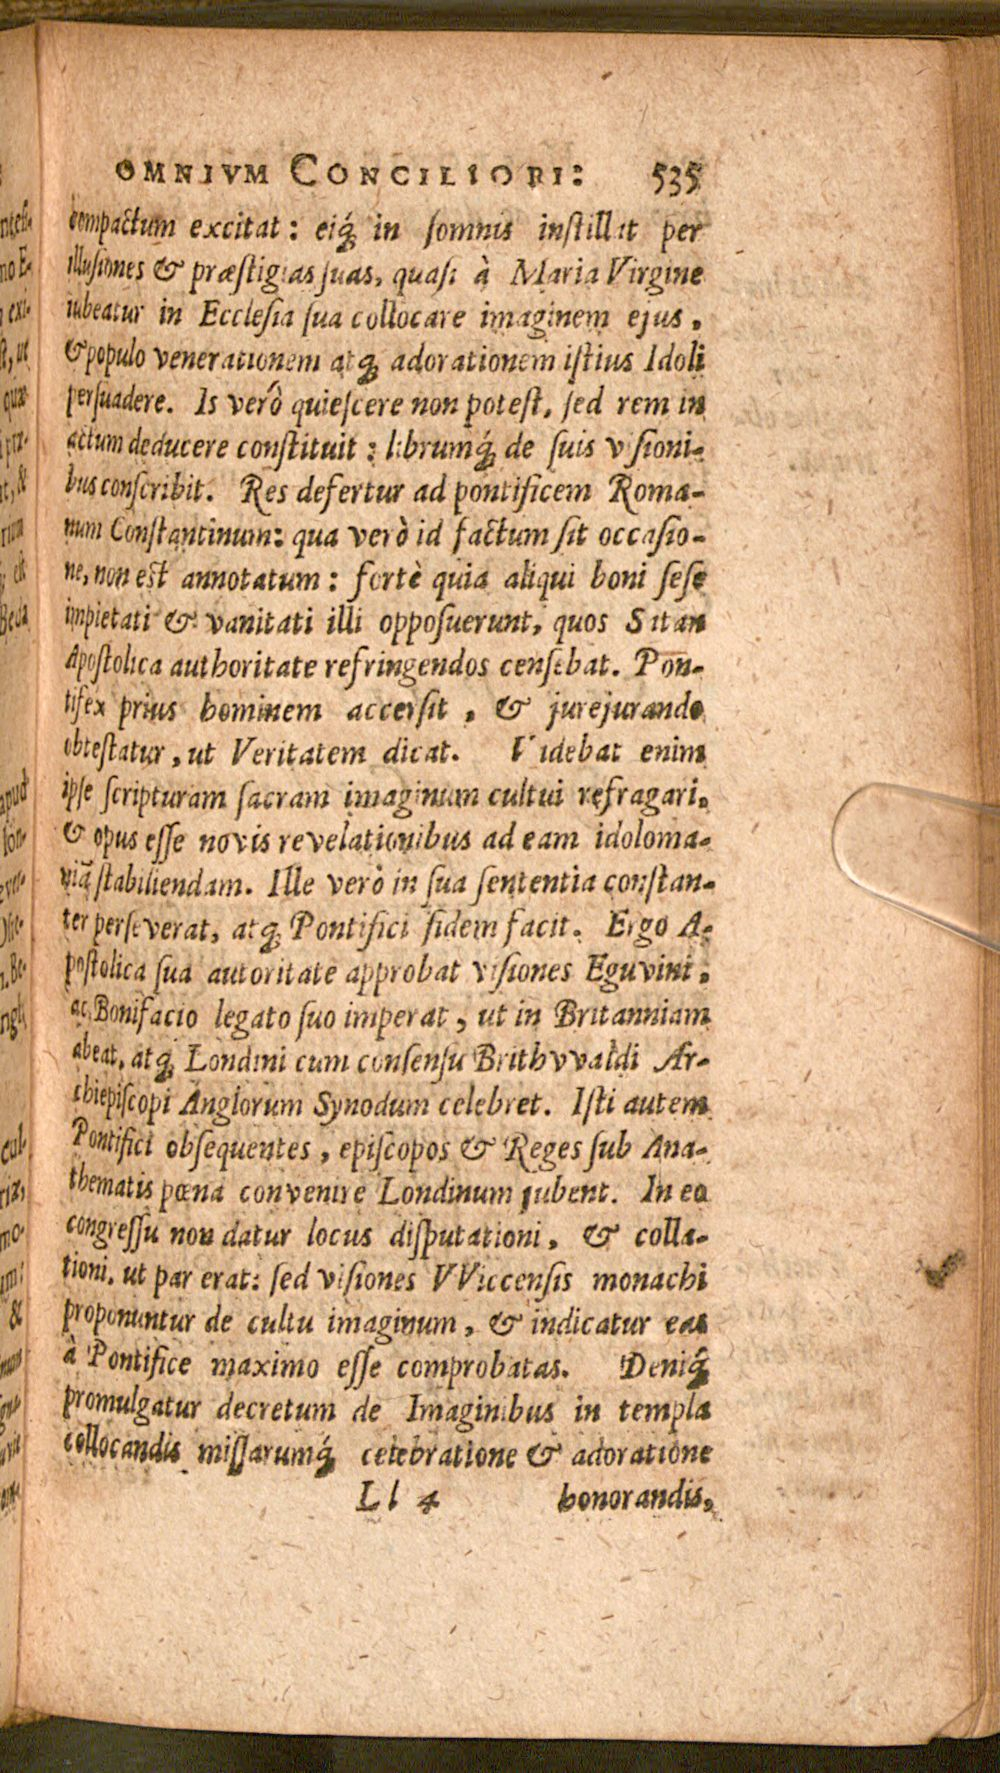 OMNIVM CONCILIORI: 535
compactum excitat: eiq́; in ſomnis inſtillat per
illuſiones & præſtigias ſuas, quaſi à Maria Virgine
iubeatur in Eccleſia ſua collocare imaginem ejus,
& populo venerationem atq; adorationem iſtius Idoli
perſuadere. Is verò quieſcere non poteſt, ſed rem in
actum deducere conſtituit: librumq́; de ſuis viſioni-
bus conſcribit. Res defertur ad pontificem Roma-
num Conſtantinum: qua verò id factum ſit occaſio-
ne, non eſt annotatum: fortè quia aliqui boni ſeſe
impietati & vanitati illi oppoſuerunt, quos Satan
Apoſtolica authoritate refringendos cenſebat. Pon-
tifex prius hominem accerſit, & jurejurando
obteſtatur, ut Veritatem dicat. Videbat enim
ipſe ſcripturam ſacram imaginum cultui refragari,
& opus eſſe novis revelationibus ad eam idoloma-
niā ſtabiliendam. Ille verò in ſua ſententia conſtan-
ter perſeverat, atq; Pontifici fidem facit. Ergo A-
poſtolica ſua autoritate approbat viſiones Eguvini,
ac Bonifacio legato ſuo imperat, ut in Britanniam
abeat, atq; Londini cum conſenſu Brithvvaldi Ar-
chiepiſcopi Anglorum Synodum celebret. Iſti autem
Pontifici obſequentes, epiſcopos & Reges ſub Ana-
thematis pœna convenire Londinum jubent. In eo
congreſſu non datur locus diſputationi, & colla-
tioni, ut par erat: ſed viſiones VViccenſis monachi
proponuntur de cultu imaginum, & indicatur eas
à Pontifice maximo eſſe comprobatas. Deniq́;
promulgatur decretum de Imaginibus in templa
collocandis miſſarumq́; celebratione & adoratione
Ll 4 honorandis,